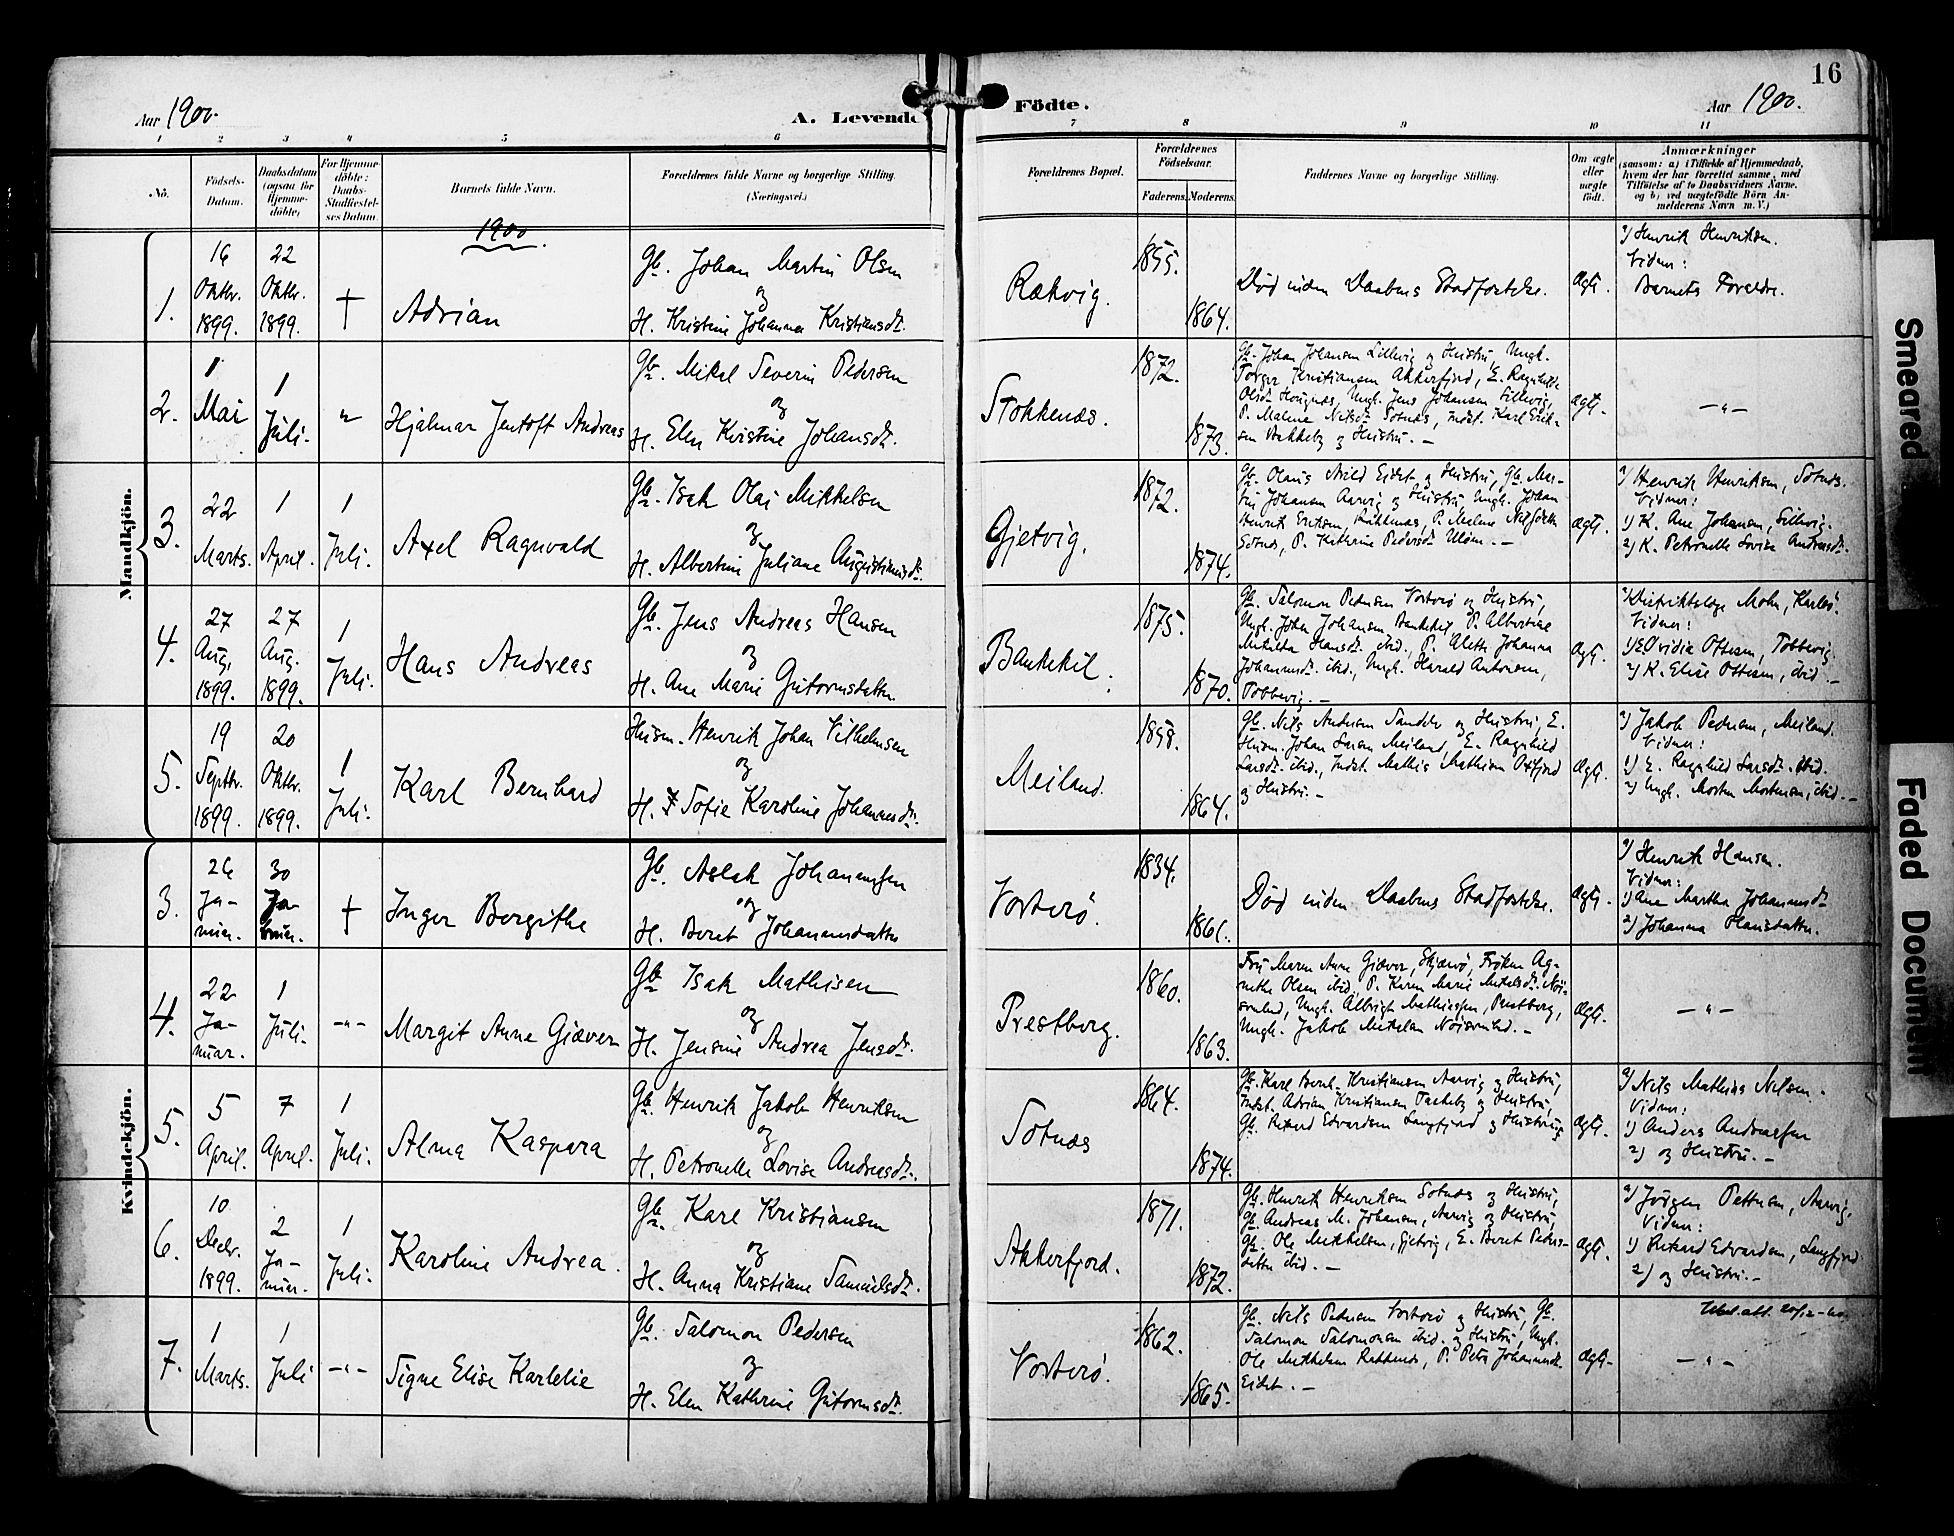 16
Aar 1900.
A. Levende Födte.
Aar 1900.
1 2 3 4 5 6 7 8 9 10 11
No.
Födsels-Datum.
Daabsdatum (ogsaa for Hjemme-döbte)
For Hjemme-döbte: Daabs-Stadfæstel-ses Datum.
Barnets fulde Navn.
Forældrenes fulde Navne og borgerlige Stilling. (Næringsvei.)
Forældrenes Bopæl.
Forældrenes Födselsaar.
Faderens. Moderens.
Faddernes Navne og borgerlige Stilling.
Om ægte eller uægte födt.
Anmærkninger
(saasom: a) i Tilfælde af Hjemmedaab,
hvem der har forrettet samme, med
Tilföielse af to Daabsvidners Navne.
og b) ved uægtefödte Börn An-
melderens Navn m. V.)
1900.
Mandkjön.
1.
16 Oktbr. 1899.
22 Oktbr. 1899.
†
Adrian
Gb. Johan Martin Olsen
og
H. Kristine Johanna Kristiansdt.
Rækvig.
1855.
1864.
Död inden Daabens Stadfæstelse.
Ægte.
a) Henrik Henriksen.
Vidner:
Barnets Forældre.
2.
1 Mai
1 Juli.
"
Hjalmar Jentoft Andreas
Gbr. Mikal Severin Pedersen
og
H. Elen Kristine Johansdt.
Stokkenæs.
1872.
1873.
Gb. Johan Johansen Lillevig og Hustru, Ungk.
Torger Kristiansen Akkerfjord, E. Ragnhild
Olsdt. Haugnæs, Ungk. Jens Johansen Lillevig,
P. Malene Nilsdt. Sotnæs, Indst. Karl Erik-
sen Bakkeby og Hustru. —
Ægte.
— " —
3.
22 Marts.
1 April.
1 Juli.
Axel Ragnvald
Gb. Isak Olai Mikkelsen
og
H. Albertine Juliane Augustinusdt.
Gjetvig.
1872.
1874.
Gb. Olaus Arild Eidet og Hustru, Gb. Mar-
tin Johansen Aarvig og Hustru, Ungk. Johan
Henrik Eriksen, Rakkenæs, P. Malene Nilsdatter
Sotnæs, P. Kathrine Pedersdt. Uløen. —
Ægte.
a) Henrik Henriksen, Sotnæs.
Vidner:
1) K. Ane Johansen, Lillevig.
2) K. Petronelle Lovise Andreasdt.
4.
27 Aug. 1899.
27 Aug. 1899.
1 Juli.
Hans Andreas
Gb. Jens Andreas Hansen
og
H. Ane Marie Gutormsdatter
Bankekil.
1875.
1870.
Gb. Salomon Pedersen Vorterö og Hustru,
Ungk. Johan Johansen Bankekil, P. Albertine
Mathilda Hansdt. ibid., P. Alette Johanna
Johannesdt. ibid., Ungk. Harald Antonsen,
Tobbevig. —
Ægte.
a) Distriktslæge Mohn, Karlsö.
Vidner:
1) E. Ovidia Ottesen, Tobbevig.
2) K. Elise Ottesen, ibid. —
5.
19 Septbr. 1899.
20 Oktbr. 1899.
1 Juli.
Karl Bernhard
Husm. Henrik Johan Vilhelmsen
og
H. Sofie Karoline Johannesdt.
Meiland.
1858.
1864.
Gb. Nils Andersen Sandelv og Hustru, E.
Husm. Johan Larsen Meiland, E. Ragnhild
Larsdt. ibid., Indst. Mathis Mathisen Oxfjord
og Hustru. —
Ægte.
a) Jakob Pedersen, Meiland.
Vidner:
1) E. Ragnhild Larsdt. ibid.
2) Ungk. Morten Mortensen, ibid. —
Kvindekjön.
3.
26 Ja-nuar.
30 Ja-nuar.
†
Inger Bergithe
Gb. Aslak Johannessen
og
H. Beret Johannesdatter
Vorterö.
1834.
1861.
Död inden Daabens Stadfæstelse.
Ægte.
a) Henrik Hansen.
Vidner:
1) Ane Martha Johannesdt.
2) Johanna Hansdatter.
4.
22 Ja-nuar.
1 Juli.
-"-
Margit Anna Giæver
Gbr Isak Mathisen
og
H. Jensine Andrea Jensdt.
Prestberg.
1860.
1863.
Fru Maren Anna Giæver, Skjærvö, Fröken Ag-
nethe Olsen ibid., P. Karen Marie Mikelsdt. ,
Ungk. Albrigt Mathiassen, Prestberg,
Ungk. Jakob Mikelsen . —
Ægte.
— " —
5.
5 April.
7 April.
1 Juli.
Alma Kaspara
Gb. Henrik Jakob Henriksen
og
H. Petronelle Lovise Andreasdt.
Sotnæs
1864.
1874.
Gb. Karl Bernh. Kristiansen Aarvig og Hustru,
Indst. Adrian Kristiansen Bakkeby og Hustru,
Gb. Rikard Edvardsen Langfjord og Hustru.
Ægte.
a) Nils Mathias Nilsen.
Vidner:
1) Anders Andreassen
2) og Hustru. —
6.
10 Decbr. 1899.
2 Ja-nuar.
1 Juli.
Karoline Andrea.
Gb. Karl Kristiansen
og
H. Anna Kristiane Samuelsdt.
Akkerfjord.
1871.
1872.
Gb. Henrik Henriksen Sotnæs og Hustru,
Gb. Andreas M. Johansen, Aarvig og Hustru,
Gb. Ole Mikkelsen, Gjetvig, E. Beret Peders-
datter ibid. —
Ægte.
a) Jörgen Pettersen, Aarvig.
Vidner:
1) Rikard Edvardsen, Langfjord
2) og Hustru. —
7.
1 Marts.
1 Juli
-"-
Signe Elise Karlelie
Gb. Salomon Pedersen
og
H. Elen Kathrine Gutormsdt.
Vorterö.
1862.
1865.
Gb. Nils Pedersen Vorterö og Hustru, Gb.
Salomon Salomonsen ibid. og Hustru, Ungk.
Ole Mikkelsen Rakkenæs, P. Petra Johannesdt.
Eidet. —
Ægte.
Utst. att. 20/12-40.
— " —
Smeared
Faded Document